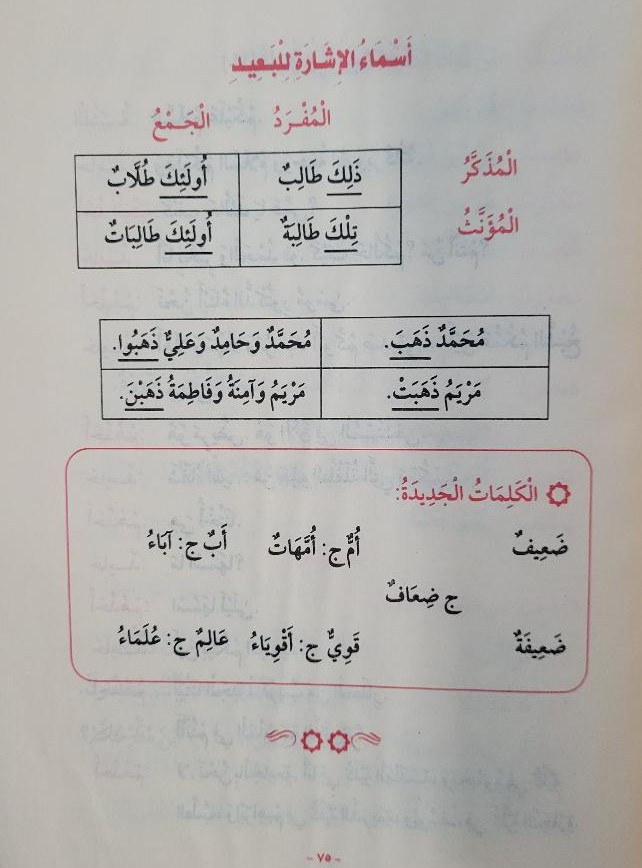 أَسْمَاءُ الإِشَارَةِ لِلْبَعِيدِ
الْمُفْرَدُ الْجَمْعُ
الْمُذَكَّرُ ذَلِكَ طَالِبٌ أُولَئِكَ طُلَّابٌ
الْمُؤَنَّثُ تِلْكَ طَالِبَةٌ أُولَئِكَ طَالِبَاتٌ
مُحَمَّدٌ ذَهَبَ. مُحَمَّدٌ وَحَامِدٌ وَعَلِيٌّ ذَهَبُوا.
مَرْيَمُ ذَهَبَتْ. مَرْيَمُ وَآمِنَةُ وَفَاطِمَةُ ذَهَبْنَ.
الْكَلِمَاتُ الْجَدِيدَةُ:
ضَعِيفٌ أُمٌّ ج: أُمَّهَاتٌ أَبٌ ج: آبَاءُ
ج ضِعَافٌ
ضَعِيفَةٌ قَوِيٌّ ج: أَقْوِيَاءُ عَالِمٌ ج: عُلَمَاءُ
- ٧٥ -